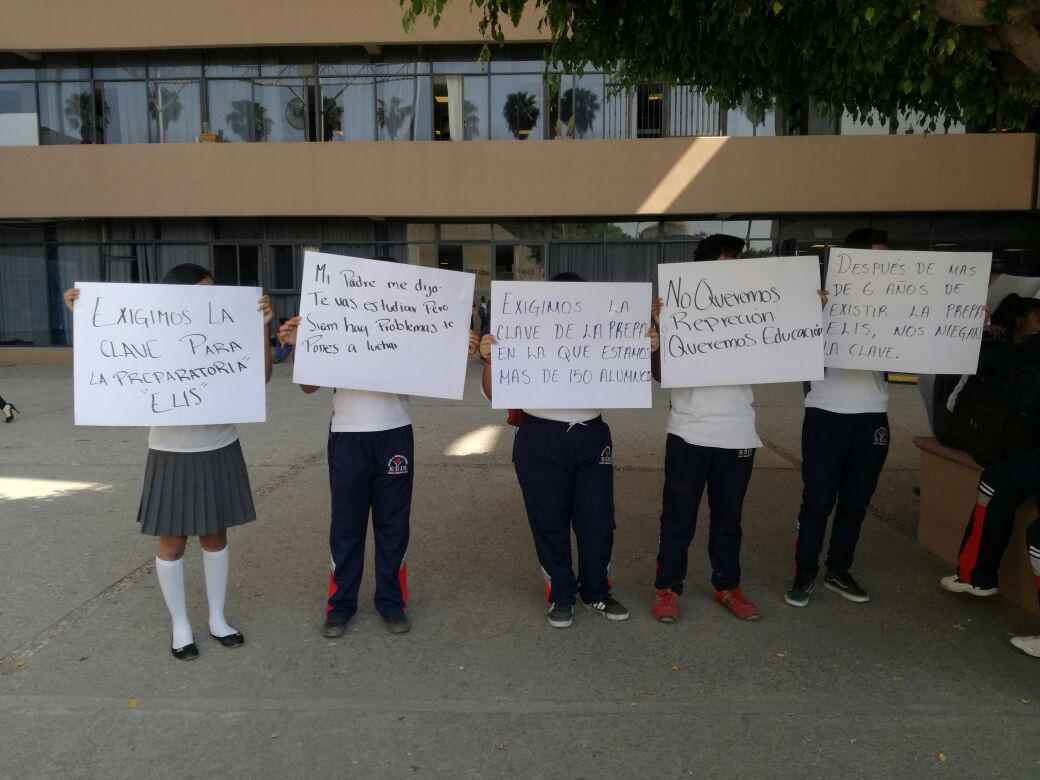 EXIGIMOS LA
CLAVE PARA
LA PREPARATORIA"
"ELIS"
Mi Padre me dijo:
Te vas estudiar Pero
Siem hay Problemas te
Pones a luchar
EXIGIMOS LA
CLAVE DE LA PREPA
EN LA QUE ESTAMOS
MAS DE 150 ALUMNOS
No Queremos
Represión
¡Queremos Educación
DESPUÉS DE MAS
DE 6 AÑOS DE
EXISTIR LA PREPA
ELIS, NOS NIEGAN
LA CLAVE.
EDIS
EDIS
EDIS
EDIS